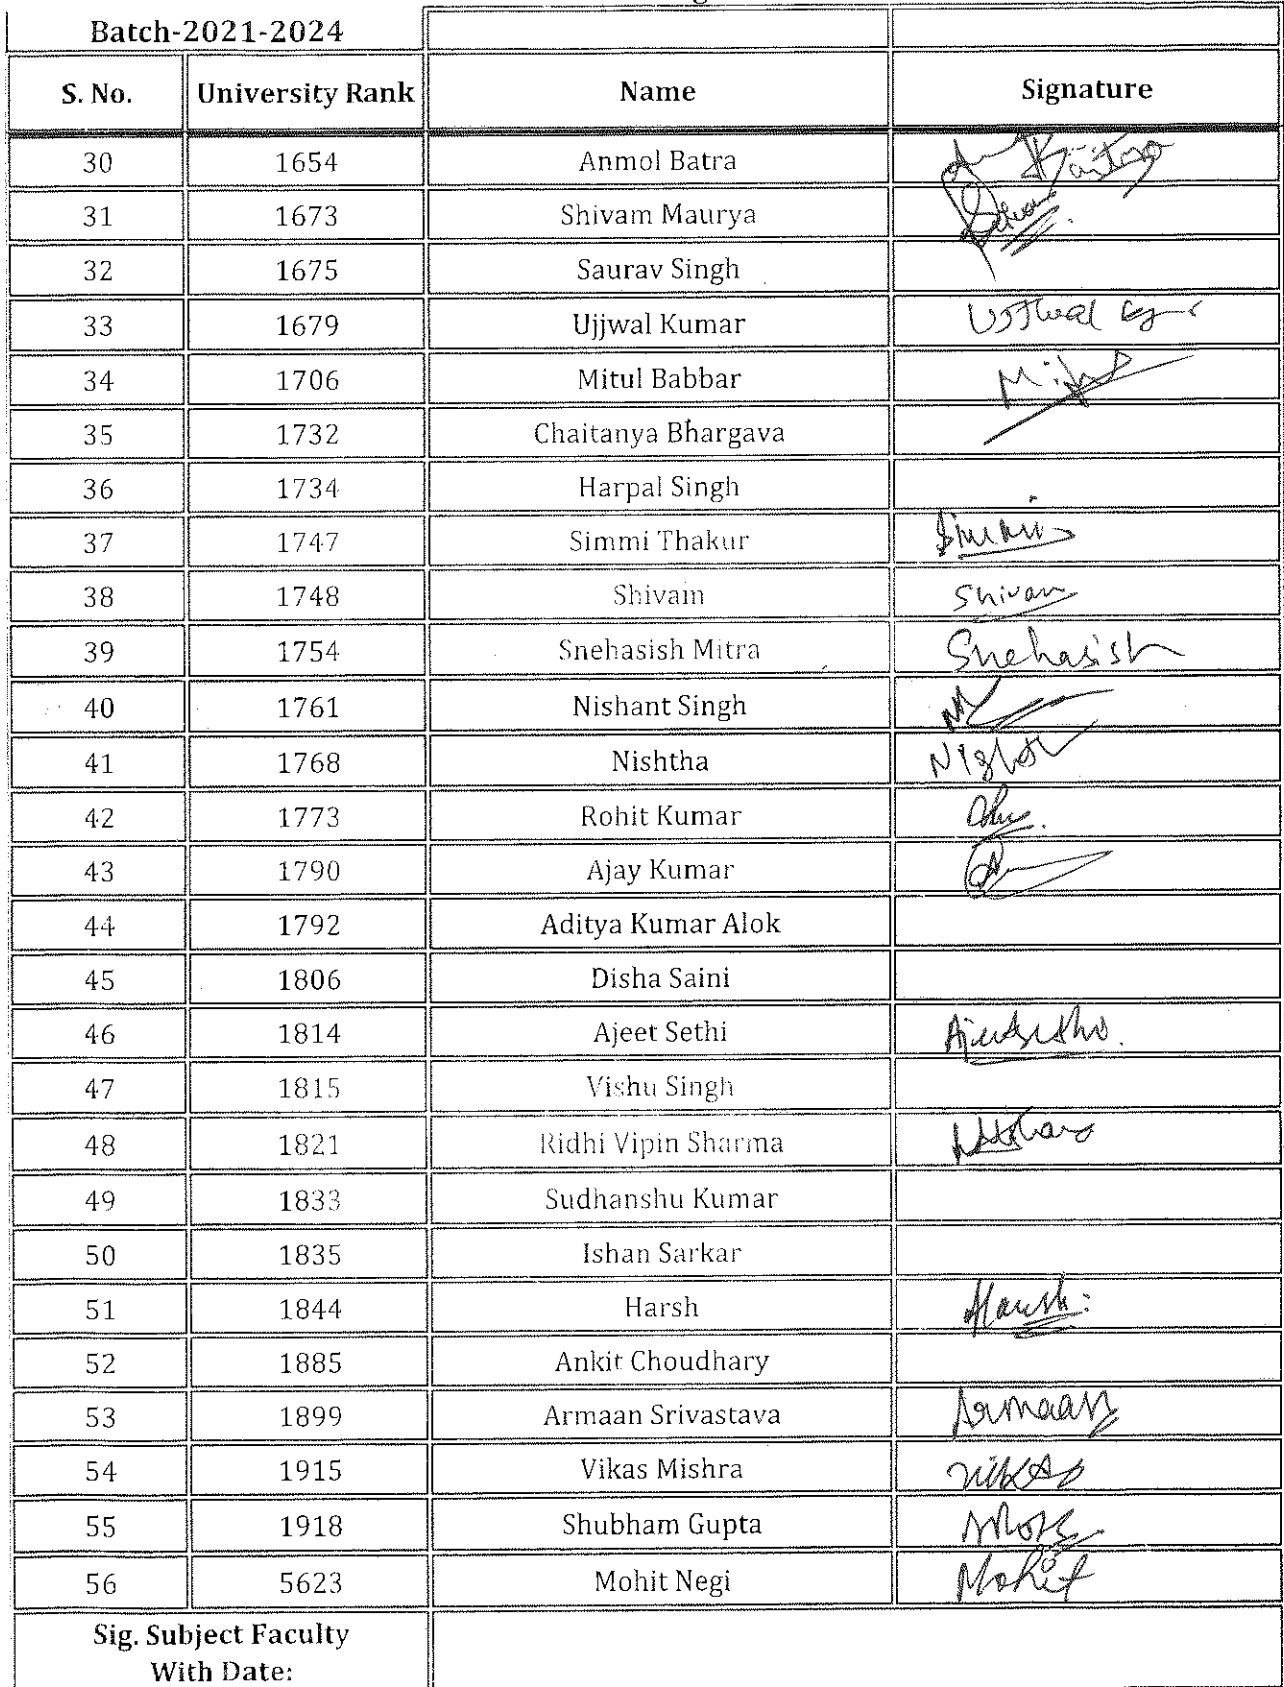 Batch-2021-2024
S. No. University Rank Name Signature
30 1654 Anmol Batra
31 1673 Shivam Maurya
32 1675 Saurav Singh
33 1679 Ujjwal Kumar
34 1706 Mitul Babbar
35 1732 Chaitanya Bhargava
36 1734 Harpal Singh
37 1747 Simmi Thakur
38 1748 Shivam Shivam
39 1754 Snehasish Mitra Snehasish
40 1761 Nishant Singh
41 1768 Nishtha
42 1773 Rohit Kumar
43 1790 Ajay Kumar
44 1792 Aditya Kumar Alok
45 1806 Disha Saini
46 1814 Ajeet Sethi
47 1815 Vishu Singh
48 1821 Ridhi Vipin Sharma
49 1833 Sudhanshu Kumar
50 1835 Ishan Sarkar
51 1844 Harsh Harsh
52 1885 Ankit Choudhary
53 1899 Armaan Srivastava Armaan
54 1915 Vikas Mishra Vikas
55 1918 Shubham Gupta
56 5623 Mohit Negi Mohit
Sig. Subject Faculty
With Date: